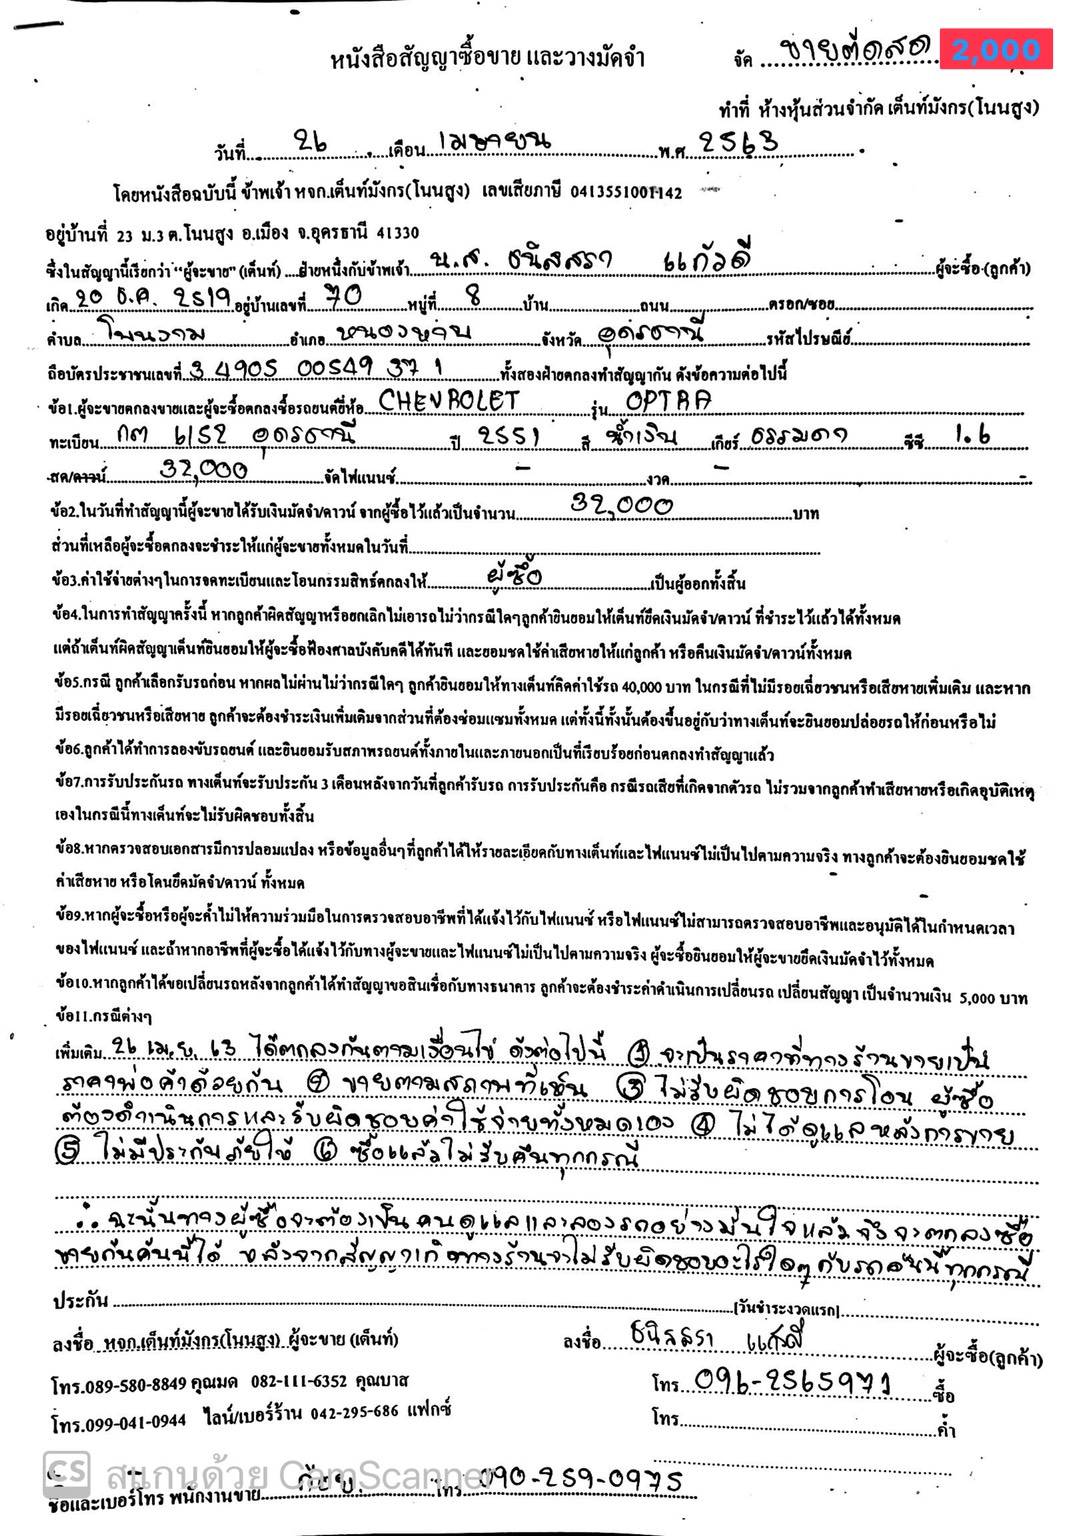 หนังสือสัญญาซื้อขาย และวางมัดจำ
จัด ขายตัดสด 2,000
ทำที่ ห้างหุ้นส่วนจำกัด เต็นท์มังกร(โนนสูง)
วันที่ 26 เดือน เมษายน พ.ศ 2563
โดยหนังสือฉบับนี้ ข้าพเจ้า หจก.เต็นท์มังกร(โนนสูง) เลขเสียภาษี 0413551001142
อยู่บ้านที่ 23 ม.3 ต.โนนสูง อ.เมือง จ.อุดรธานี 41330
ซึ่งในสัญญานี้เรียกว่า "ผู้จะขาย" (เต็นท์) ฝ่ายหนึ่งกับข้าพเจ้า น.ส. ธนิสสรา แก้วดี ผู้จะซื้อ (ลูกค้า)
เกิด 20 ธ.ค. 2519 อยู่บ้านเลขที่ 70 หมู่ที่ 8 บ้าน ถนน ตรอก/ซอย
ตำบล โพนงาม อำเภอ หนองหาน จังหวัด อุดรธานี รหัสไปรษณีย์
ถือบัตรประชาชนเลขที่ 3 4905 00549 37 1 ทั้งสองฝ่ายตกลงทำสัญญากัน ดังข้อความต่อไปนี้
ข้อ1.ผู้จะขายตกลงขายและผู้จะซื้อตกลงซื้อรถยนต์ยี่ห้อ CHEVROLET รุ่น OPTRA
ทะเบียน กต 6152 อุดรธานี ปี 2551 สี น้ำเงิน เกียร์ ธรรมดา ซีซี 1.6
สด/ดาวน์ 32,000 จัดไฟแนนซ์ - งวด -
ข้อ2.ในวันที่ทำสัญญานี้ผู้จะขายได้รับเงินมัดจำ/ดาวน์ จากผู้ซื้อไว้แล้วเป็นจำนวน 32,000 บาท
ส่วนที่เหลือผู้จะซื้อตกลงจะชำระให้แก่ผู้จะขายทั้งหมดในวันที่
ข้อ3.ค่าใช้จ่ายต่างๆในการจดทะเบียนและโอนกรรมสิทธิ์ตกลงให้ ผู้ซื้อ เป็นผู้ออกทั้งสิ้น
ข้อ4.ในการทำสัญญาครั้งนี้ หากลูกค้าผิดสัญญาหรือยกเลิกไม่เอารถไม่ว่ากรณีใดๆลูกค้ายินยอมให้เต็นท์ยึดเงินมัดจำ/ดาวน์ ที่ชำระไว้แล้วได้ทั้งหมด
แต่ถ้าเต็นท์ผิดสัญญาเต็นท์ยินยอมให้ผู้จะซื้อฟ้องศาลบังคับคดีได้ทันที และยอมชดใช้ค่าเสียหายให้แก่ลูกค้า หรือคืนเงินมัดจำ/ดาวน์ทั้งหมด
ข้อ5.กรณี ลูกค้าเลือกรับรถก่อน หากผลไม่ผ่านไม่ว่ากรณีใดๆ ลูกค้ายินยอมให้ทางเต็นท์คิดค่าใช้รถ 40,000 บาท ในกรณีที่ไม่มีรอยเฉี่ยวชนหรือเสียหายเพิ่มเติม และหาก
มีรอยเฉี่ยวชนหรือเสียหาย ลูกค้าจะต้องชำระเงินเพิ่มเติมจากส่วนที่ต้องซ่อมแซมทั้งหมด แต่ทั้งนี้ทั้งนั้นต้องขึ้นอยู่กับว่าทางเต็นท์จะยินยอมปล่อยรถให้ก่อนหรือไม่
ข้อ6.ลูกค้าได้ทำการลองขับรถยนต์ และยินยอมรับสภาพรถยนต์ทั้งภายในและภายนอกเป็นที่เรียบร้อยก่อนตกลงทำสัญญาแล้ว
ข้อ7.การรับประกันรถ ทางเต็นท์จะรับประกัน 3 เดือนหลังจากวันที่ลูกค้ารับรถ การรับประกันคือ กรณีรถเสียที่เกิดจากตัวรถ ไม่รวมจากลูกค้าทำเสียหายหรือเกิดอุบัติเหตุ
เองในกรณีนี้ทางเต็นท์จะไม่รับผิดชอบทั้งสิ้น
ข้อ8.หากตรวจสอบเอกสารมีการปลอมแปลง หรือข้อมูลอื่นๆที่ลูกค้าได้ให้รายละเอียดกับทางเต็นท์และไฟแนนซ์ไม่เป็นไปตามความจริง ทางลูกค้าจะต้องยินยอมชดใช้
ค่าเสียหาย หรือโดนยึดมัดจำ/ดาวน์ ทั้งหมด
ข้อ9.หากผู้จะซื้อหรือผู้จะค้ำไม่ให้ความร่วมมือในการตรวจสอบอาชีพที่ได้แจ้งไว้กับไฟแนนซ์ หรือไฟแนนซ์ไม่สามารถตรวจสอบอาชีพและอนุมัติได้ในกำหนดเวลา
ของไฟแนนซ์ และถ้าหากอาชีพที่ผู้จะซื้อได้แจ้งไว้กับทางผู้จะขายและไฟแนนซ์ไม่เป็นไปตามความจริง ผู้จะซื้อยินยอมให้ผู้จะขายยึดเงินมัดจำไว้ทั้งหมด
ข้อ10.หากลูกค้าได้ขอเปลี่ยนรถหลังจากลูกค้าได้ทำสัญญาขอสินเชื่อกับทางธนาคาร ลูกค้าจะต้องชำระค่าดำเนินการเปลี่ยนรถ เปลี่ยนสัญญา เป็นจำนวนเงิน 5,000 บาท
ข้อ11.กรณีต่างๆ
เพิ่มเติม 26 เม.ย. 63 ได้ตกลงกันตามเงื่อนไข ดังต่อไปนี้ ① จะเป็นราคาที่ทางร้านขายเป็น
ราคาพ่อค้าด้วยกัน ② ขายตามสภาพที่เห็น ③ ไม่รับผิดชอบการโอน ผู้ซื้อ
ต้องดำเนินการและรับผิดชอบค่าใช้จ่ายทั้งหมดเอง ④ ไม่ได้ดูแลหลังการขาย
⑤ ไม่มีประกันภัยให้ ⑥ ซื้อแล้วไม่รับคืนทุกกรณี
∴ ฉะนั้นทางผู้ซื้อจะต้องเป็นคนดูแลและลองรถอย่างมั่นใจแล้วจึงจะตกลงซื้อ
ขายกันคันนี้ได้ หลังจากสัญญาเกิดทางร้านจะไม่รับผิดชอบอะไรใดๆกับรถคันนี้ทุกกรณี
ประกัน [วันชำระงวดแรก]
ลงชื่อ หจก.เต็นท์มังกร(โนนสูง) ผู้จะขาย (เต็นท์) ลงชื่อ ธนิสสรา แก้วดี ผู้จะซื้อ(ลูกค้า)
โทร.089-580-8849 คุณมด 082-111-6352 คุณบาส โทร 096-2565971 ซื้อ
โทร.099-041-0944 ไลน์/เบอร์ร้าน 042-295-686 แฟกซ์ โทร ค้ำ
CS สแกนด้วย CamScanner
ชื่อและเบอร์โทร พนักงานขาย โทร 090-259-0975